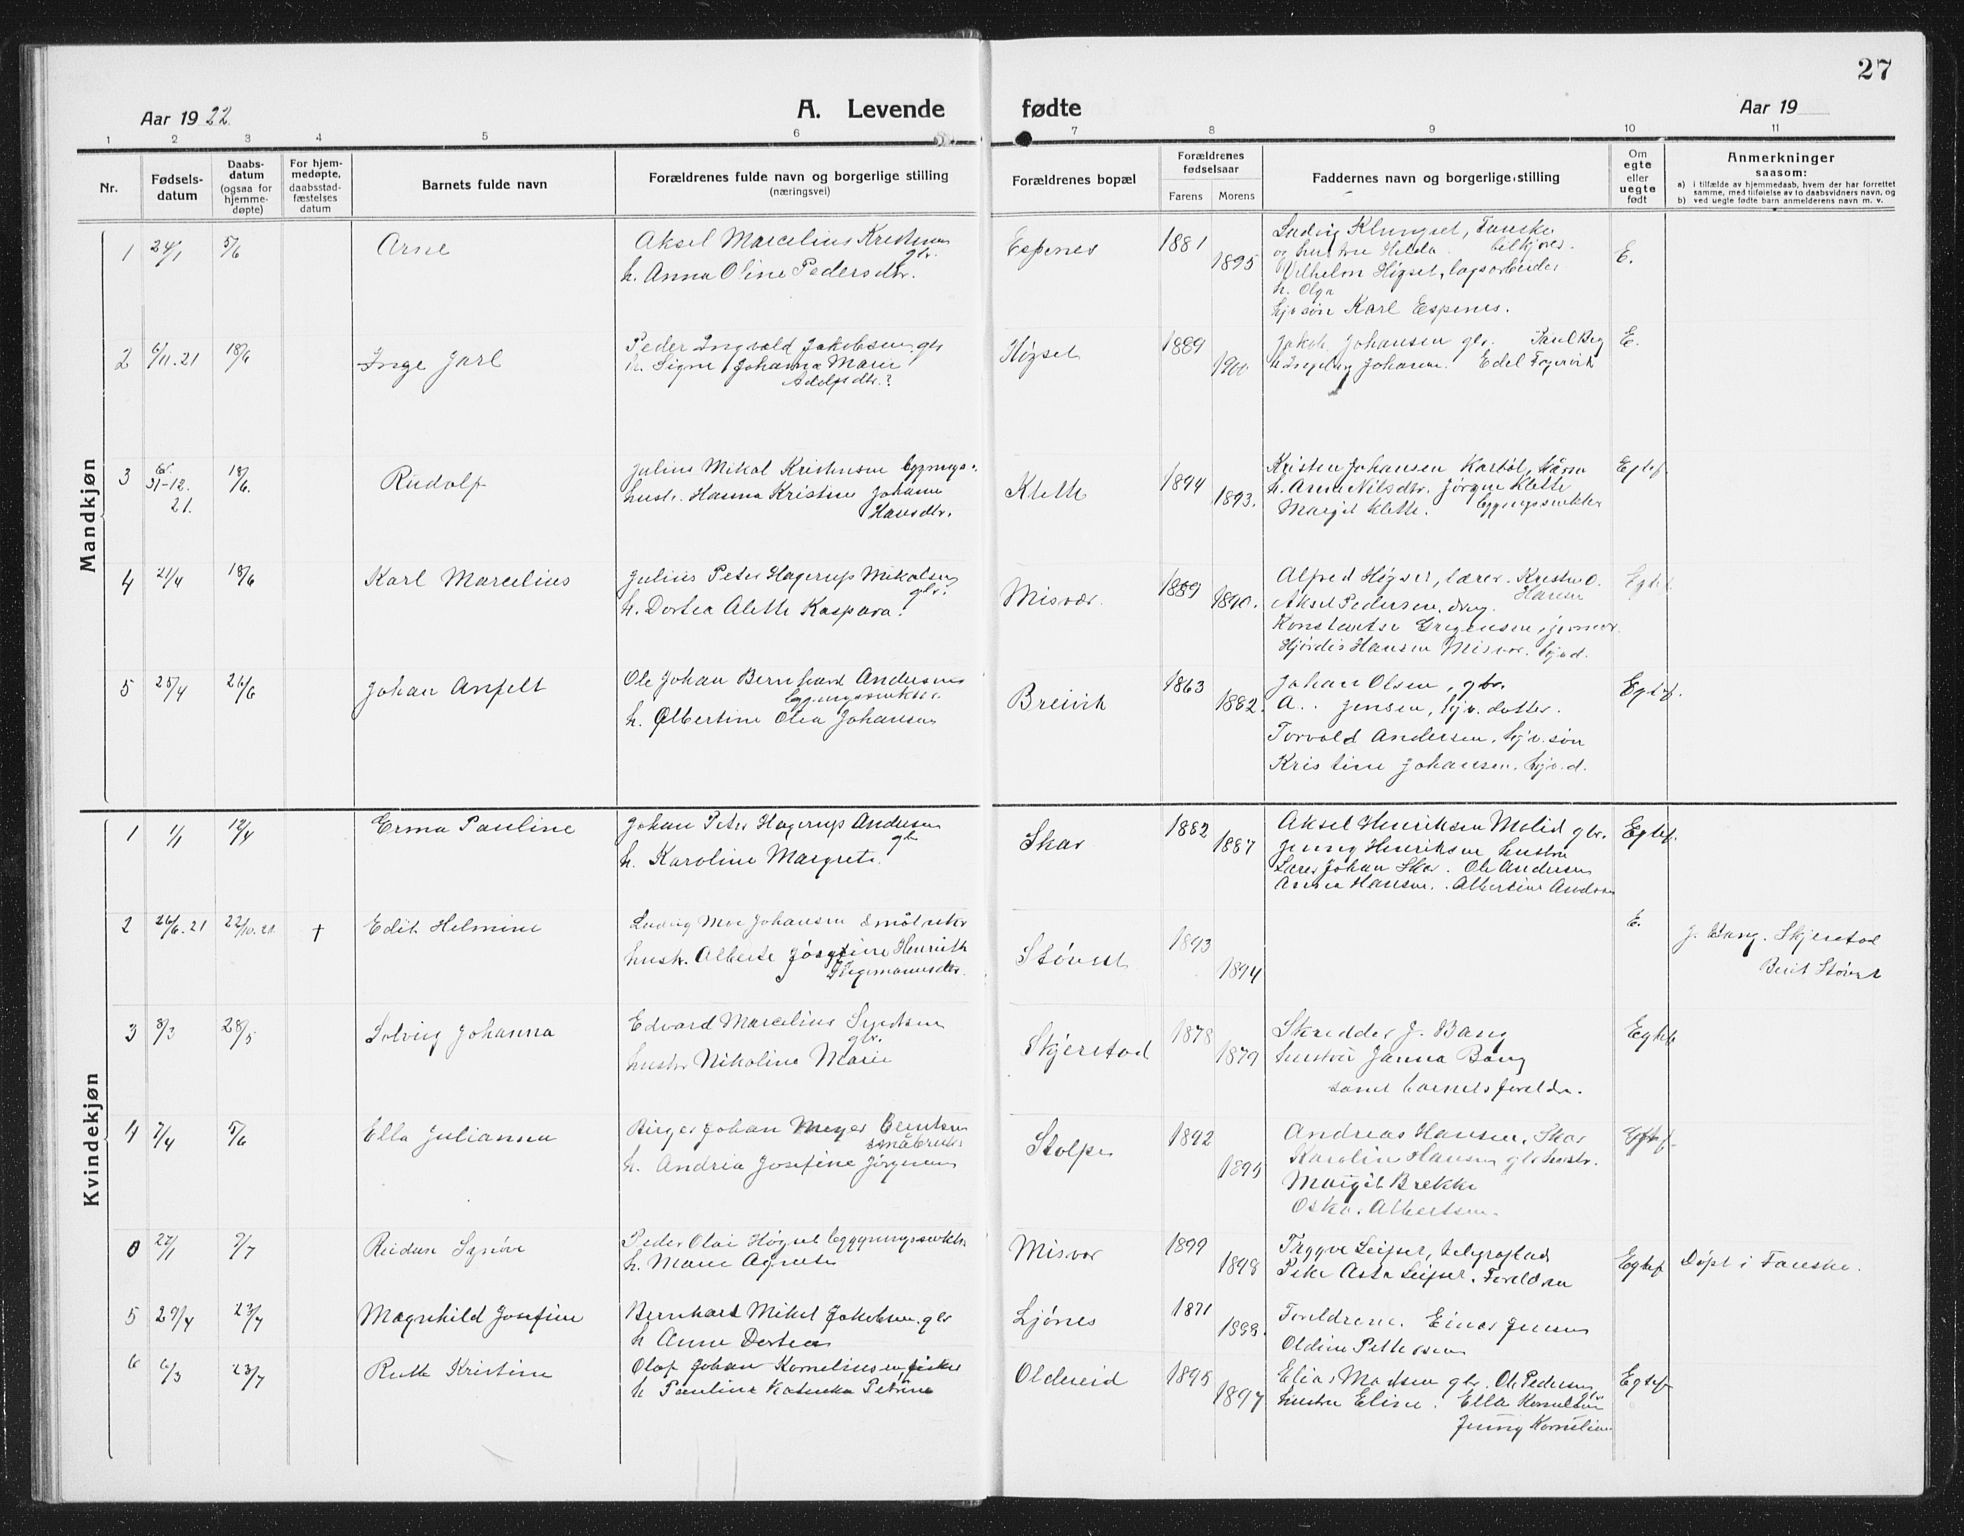 27
Aar 1922
A. Levende fødte
Aar 19
1 2 3 4 5 6 7 8 9 10 11
Nr.
Fødsels-
datum
Daabs-
datum
(ogsaa for
hjemme-
døpte)
For hjem-
medøpte,
daabsstad-
fæstelses
datum
Barnets fulde navn
Forældrenes fulde navn og borgerlige stilling
(næringsvei)
Forældrenes bopæl
Forældrenes
fødselsaar
Farens Morens
Faddernes navn og borgerlige stilling
Om
egte
eller
uegte
født
Anmerkninger
saasom:
a) i tilfælde av hjemmedaab, hvem der har forrettet
samme, med tilføielse av to daabsvidners navn, og
b) ved uegte fødte barn anmelderens navn m. v.
Mandkjøn
1 24/1 5/6 Arne
Aksel Marcelius Kristensen
gbr.
h. Anna Oline Pedersdtr.
Espenes 1881 1895
Ludvig Klungset, Fauske
og hustru Hilda
Vilhelm Høgset, lagsarbeider
h. Olga
Karl Espenes.
E.
2 6/11.21 18/6 Inge Jarl
Peder Ingvald Jakobsen gbr
h. Signe Johanna Marie
Adolfsdtr.?
Høgset 1889 1900
Jakob Johansen gbr. Paul Beg
Ingeborg Johansen. Edel Fagervik
E.
3 31-12. 21. 18/6. Rudolf
Julius Mikal Kristensen
hustr. Hanna Kristine Johanne
Hansdtr.
Klette 1894 1893.
Kristen Johansen
h. Anna Nilsdtr. Jørgen Klette
Margit Klette.
Egtef.
4 21/4 18/6 Karl Marcelius
Julius Peter Hagerup Mikalsen
gbr.
h. Dortea Alette Kaspara.
Misvær. 1889 1890.
Alfred Høgset, lærer. Kristen O.
Hansen
Aksel Pedersen, drug.
Hjørdis Hansen Misvær.
Egtef.
5 25/4 26/6 Johan Anfelt
Ole Johan Bernhard Andersen
h. Albertine Olea Johansen
Breivik 1863 1882.
Johan Olsen, gbr.
A. Jensen, datter.
Torvald Andersen, søn
Kristine Johansen,
Egtef.
Kvindekjøn
1 1/1 12/4 Erma Pauline
Johan Peter Hagerup Andersen
gbr
h. Karoline Margrete.
Skar 1882 1887
Aksel Henriksen Molid gbr.
Jenny Henriksen hustru
Lærer Johan Skar. Ole Andersen
Anna Hansen. Albertine Andersen
Egtef.
2 26/6.21 22/10.21 † Edit Helmine
Ludvig Moe Johansen
hustr. Alberte Josefine Henriette
Støvset 1893 1894
E.
J. Bang. Skjerstad
Berit Støvset
3 8/3 28/5 Solveig Johanna
Edvard Marcelius Sjøsen
gbr.
hustr Nikoline Marie
Skjerstad 1878 1879
Skredder J. Bang
hustru Janna Bang
samt barnets foreldre.
Egtef
4 7/4 5/6 Ella Julianna
Birger Johan Meyer Berntsen
småbruker
h. Andrea Josefine Jørgensen
Stolpe 1892 1895
Andreas Hansen, Skar
Karoline Hansen gbr hustr.
Margit Brekke
Oskar Albertsen.
Egtef
0 27/1 9/7 Reidun Synøve
Peder Olai Høgset
h. Marie Agnete
Misvær 1899 1898
Trygve Leifser,
Asta Leifser. Foreldrene
Egtef Døpt i Fauske.
5 29/4 23/7 Magnhild Josefine
Bernhard Mikal Jakobsen gbr
h Anne Dortea
Ljønes 1871 1888.
Foreldrene. Einar Jensen
Oldine Pettersen
6 6/3 23/7 Ruth Kristine
Olaf Johan Korneliussen, fisker
h Pauline Katinka Petrine
Oldereid 1895 1897
Elias Madsen gbr. Ole Pedersen
hustru Eline. Ella Korneliussen
Jenny Korneliussen
Egtef